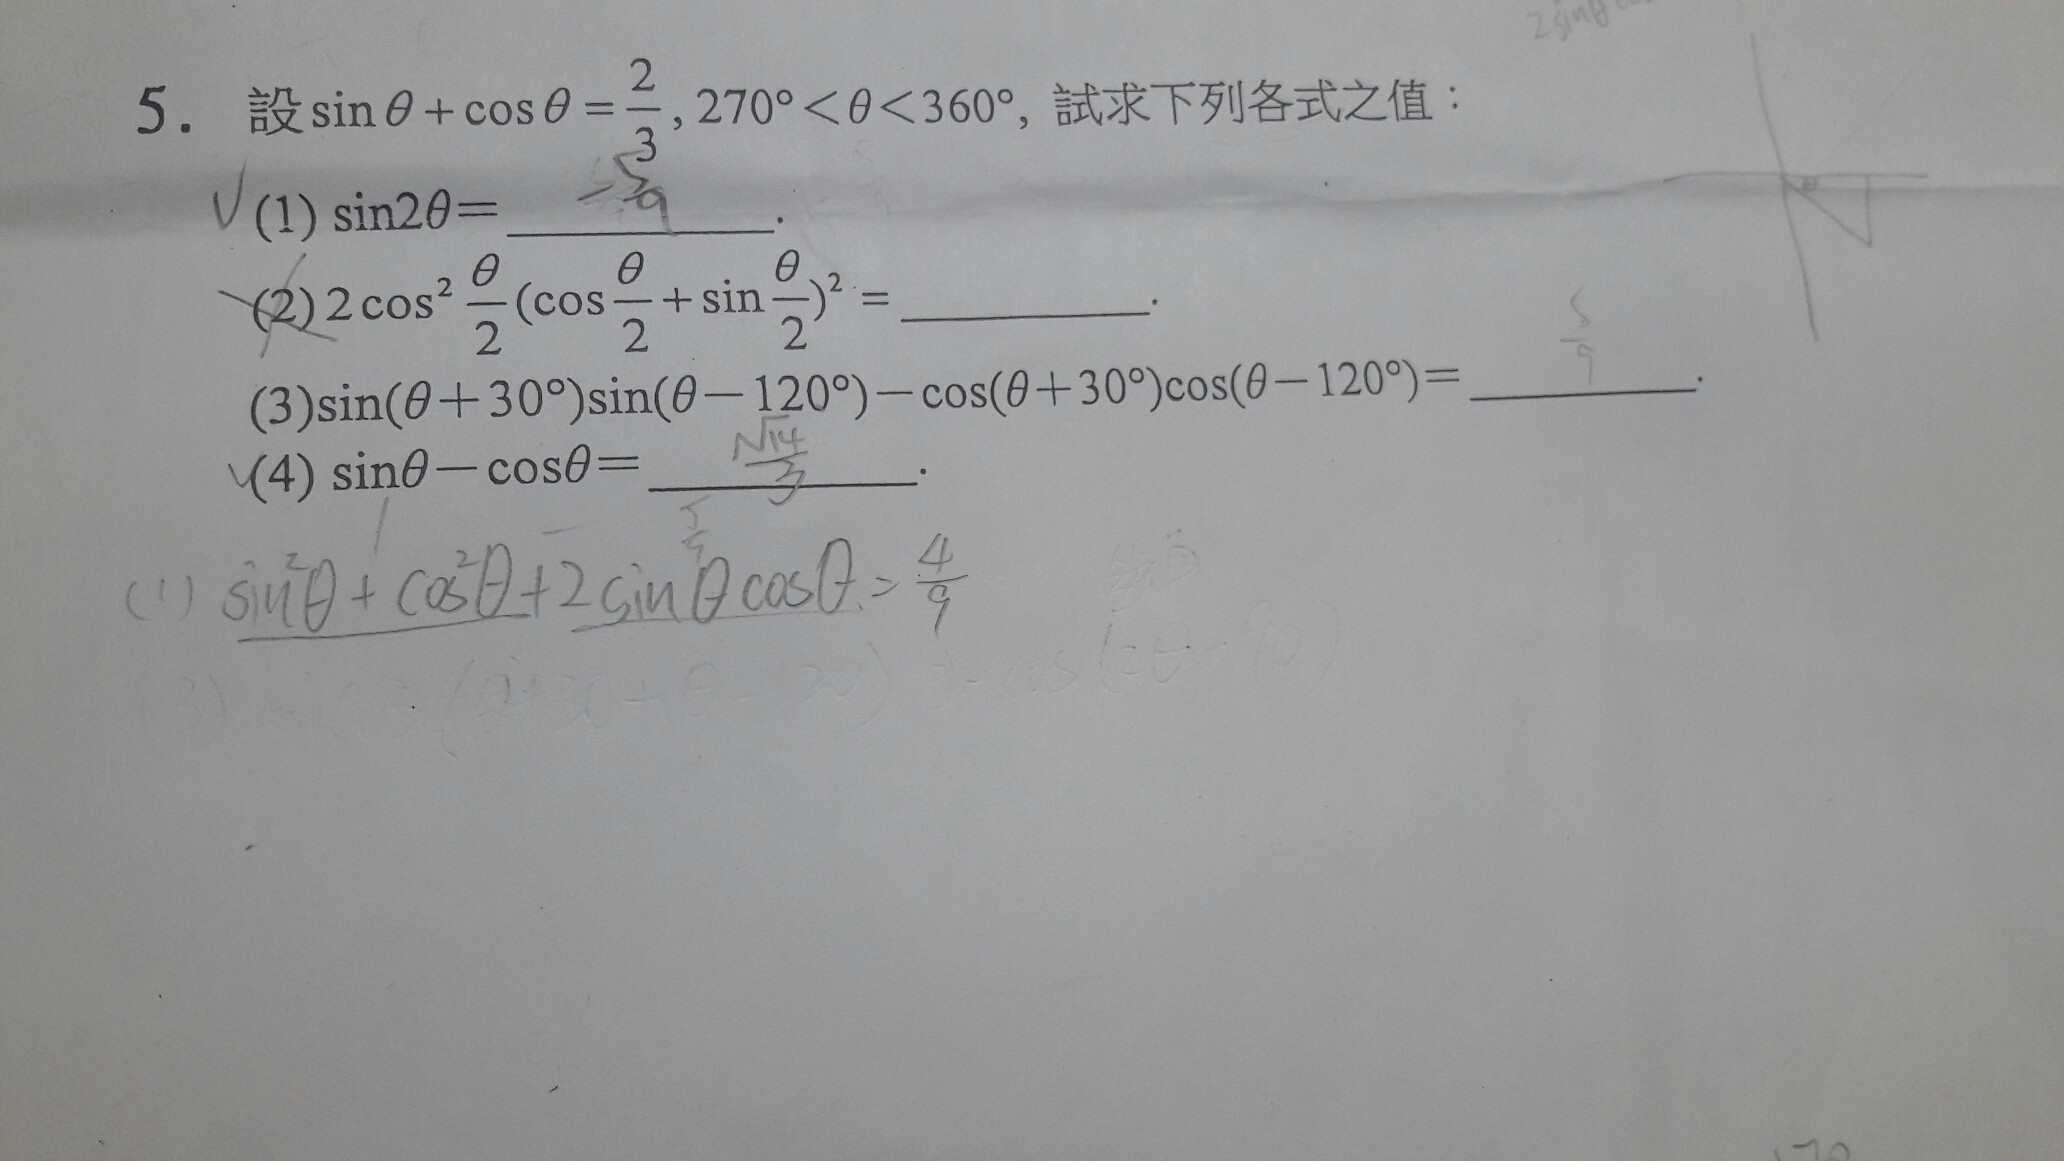 2sinθ
5. 設 sinθ + cosθ = 2/3, 270° < θ < 360°, 試求下列各式之值：
(1) sin2θ = -5/9.
(2) 2cos² θ/2 (cos θ/2 + sin θ/2)² = ________.
5/9
(3) sin(θ+30°)sin(θ-120°)-cos(θ+30°)cos(θ-120°)= ________.
(4) sinθ-cosθ= √14/3.
(1) sin²θ + cos²θ + 2sinθcosθ = 4/9